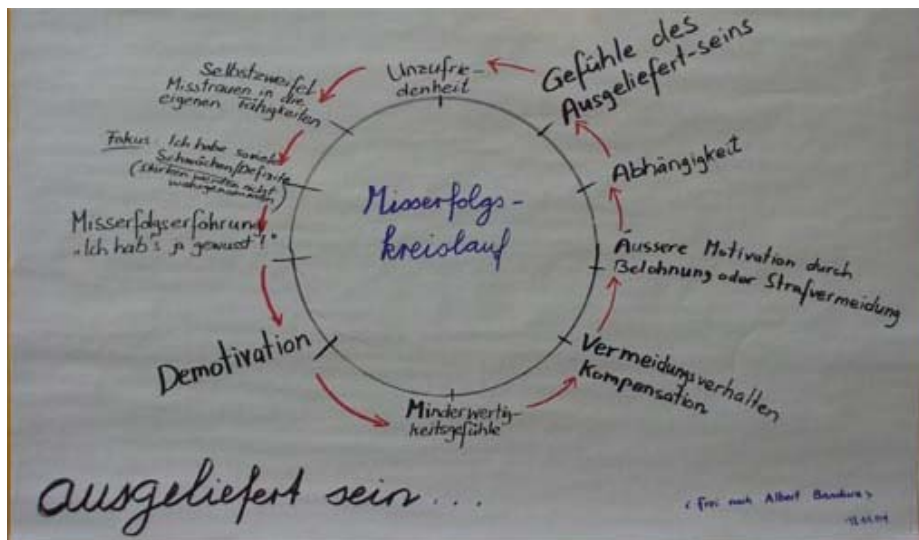 Misserfolgs-
kreislauf
Unzufrie-
denheit
Selbstzweifel
Misstrauen in die
eigenen Fähigkeiten
Fokus: Ich habe soviele
Schwächen/Defizite
(Stärken werden nicht
wahrgenommen)
Misserfolgserfahrung
"Ich hab's ja gewusst!"
Demotivation
Minderwertig-
keitsgefühle
Vermeidungsverhalten
Kompensation
Äussere Motivation durch
Belohnung oder Strafvermeidung
Abhängigkeit
Gefühle des
Ausgeliefert-seins
ausgeliefert sein...
(Frei nach Albert Bandura)